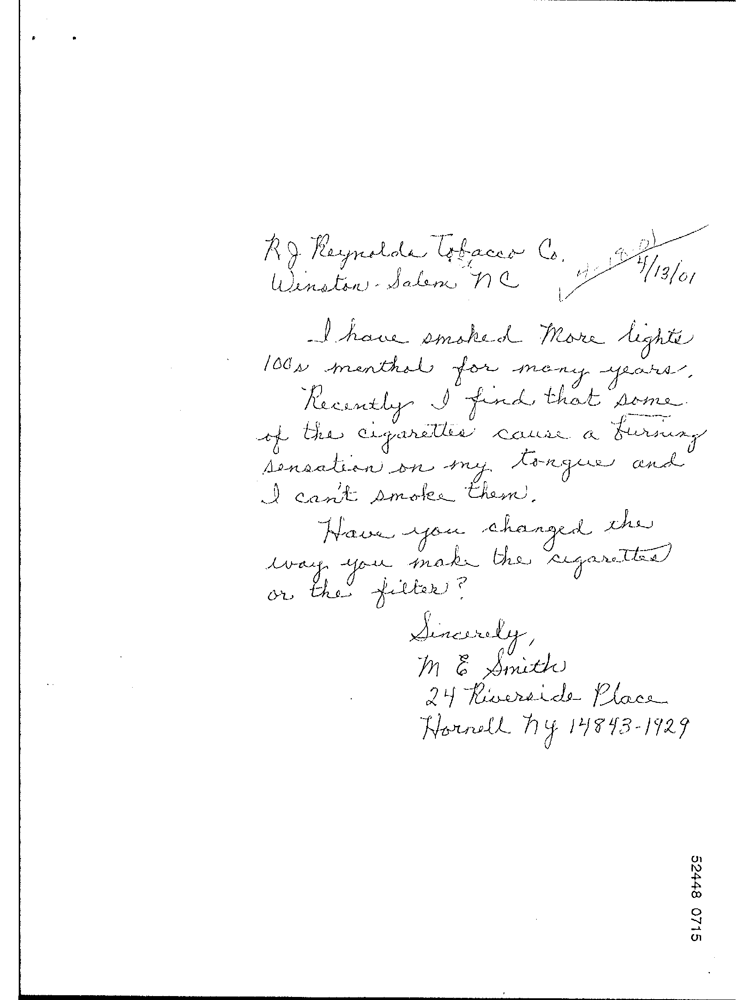 RJ Reynolds Tobacco Co.
Winston-Salem NC
4-18-01
4/13/01
I have smoked More lights
100s menthol for many years.
Recently I find that some
of the cigarettes cause a burning
sensation on my tongue and
I can't smoke them.
Have you changed the
way you make the cigarettes
or the filter?
Sincerely,
M E Smith
24 Riverside Place
Hornell NY 14843-1929
52448 0715